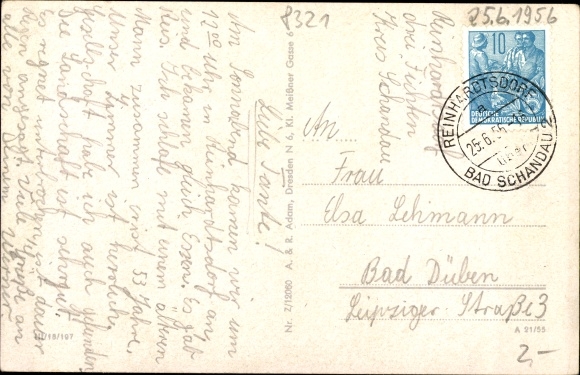 8321
25.6.1956
Reinhardtsdorf
drei Fichten
Kreis Schandau
10
DEUTSCHE
DEMOKRATISCHE REPUBLIK
REINHARDTSDORF
25.6.56
über
BAD SCHANDAU 2
Liebe Tante!
Am Sonnabend kamen wir um
12⁰⁰ Uhr in Reinhardtsdorf an
und bekamen gleich Essen. Es gab
Reis. Ich schlafe mit einem älteren
Mann zusammen mit 53 Jahre.
Unser Zimmer ist herrlich.
Gesellschaft habe ich auch gefunden
Die Landschaft ist schön!
Es regnet ununterbrochen, ist dauer
Regen angesagt. Viele Grüße an
alle von Deinem Werner
An
Frau
Elsa Lehmann
Bad Düben
Leipziger-Straße 3
Nr. Z/12060 A. & R. Adam, Dresden N 6, Kl. Meißner Gasse 6
III/18/197
A 21/55
2,-